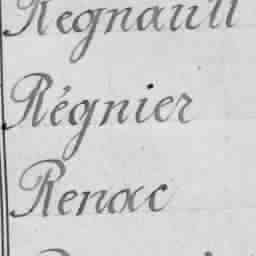 Regnault
Régnier
Renac